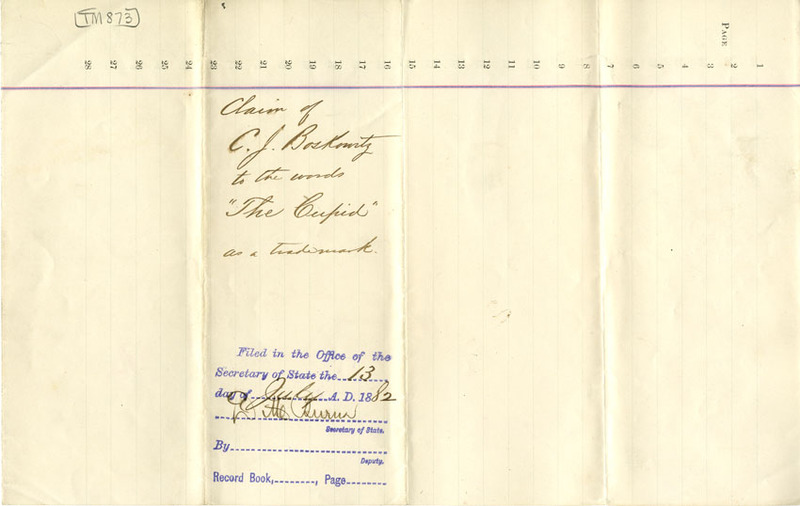 TM873
PAGE 1 2 3 4 5 6 7 8 9 10 11 12 13 14 15 16 17 18 19 20 21 22 23 24 25 26 27 28
Claim of
C. J. Boskowitz
to the words
"The Cupid"
as a trademark.
Filed in the Office of the
Secretary of State the 13
day of July A. D. 1882
Secretary of State.
By
Deputy.
Record Book, , Page